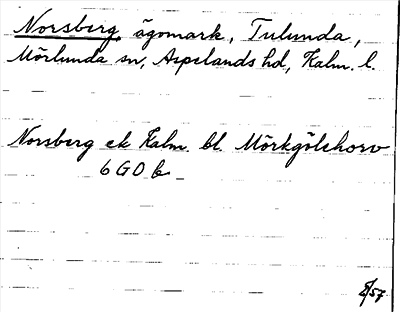 Norsberg, ägomark, Tulunda,
Mörlunda sn, Aspelands hd, Kalm. l.
Norsberg ek Kalm. bl. Mörkgölshorv
6 G 0 b
8/57